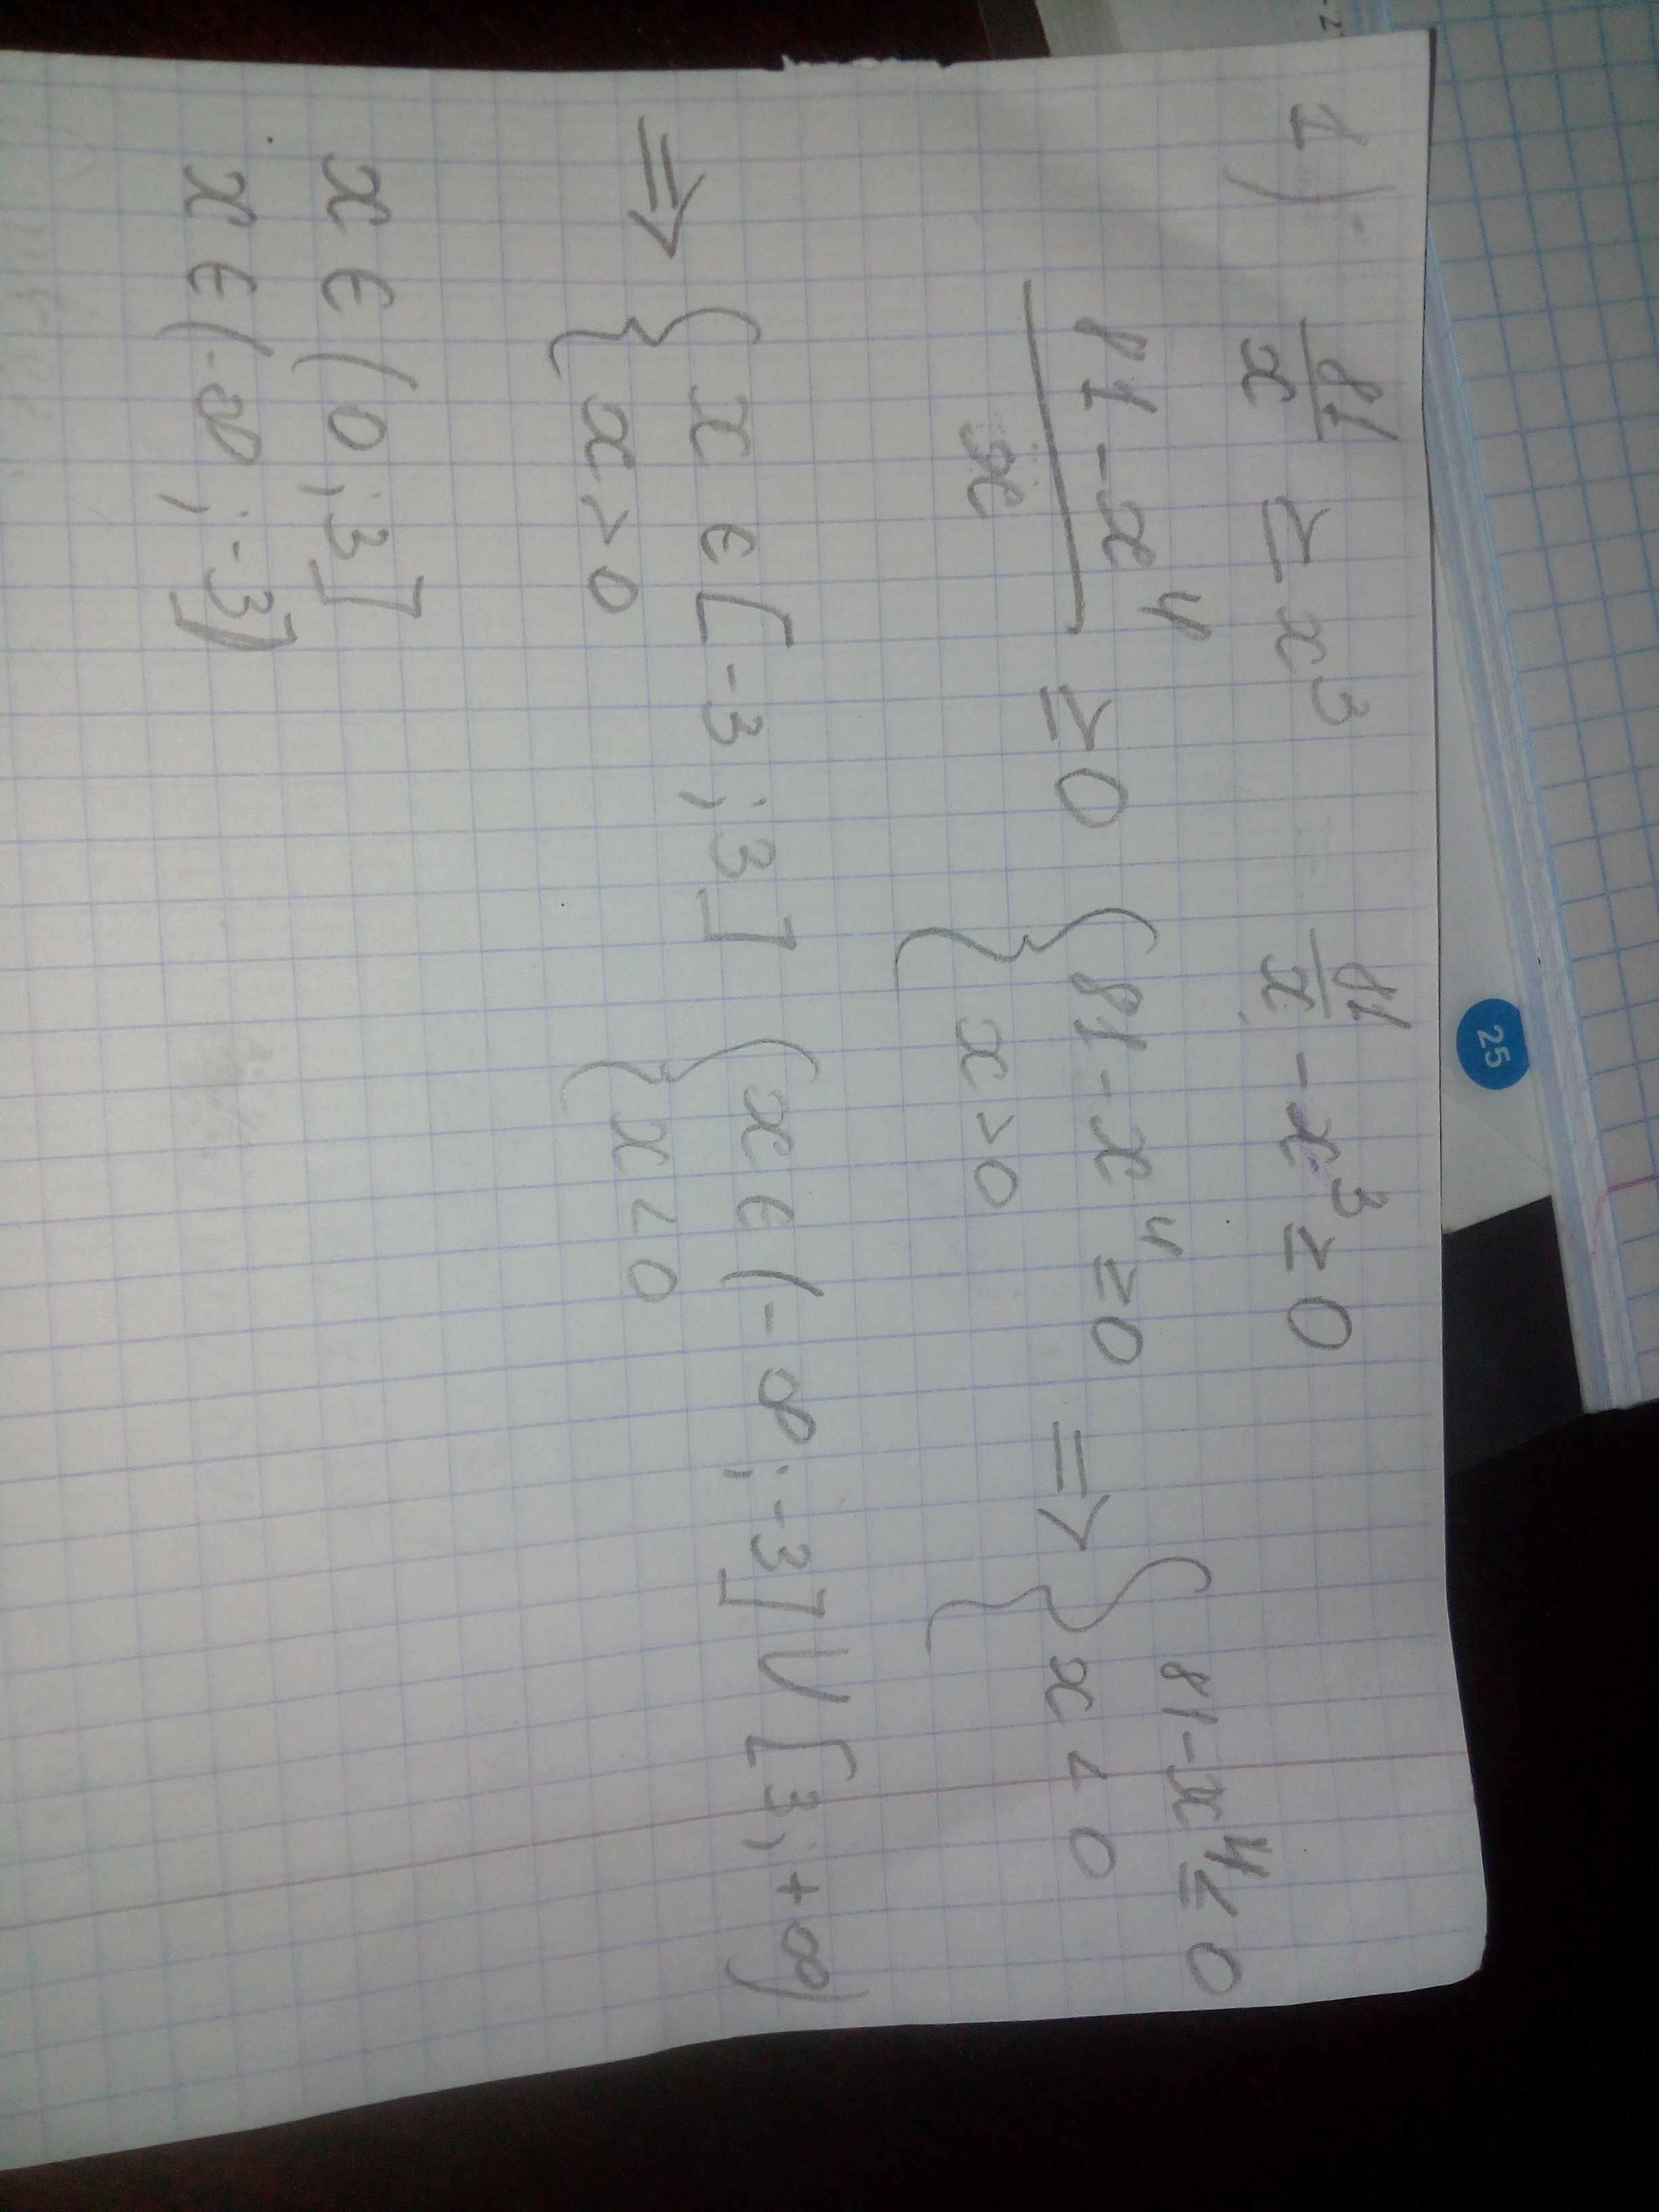 1) 81/x ≥ x³ 81/x - x³ ≥ 0
(81 - x⁴)/x ≥ 0 { 81 - x⁴ ≥ 0 ⇒ { 81 - x⁴ ≤ 0
x > 0 x < 0
⇒ { x ∈ [-3 ; 3] { x ∈ (-∞ ; -3] ∪ [3 ; +∞)
x > 0 x < 0
x ∈ (0 ; 3]
x ∈ (-∞ ; -3]
25